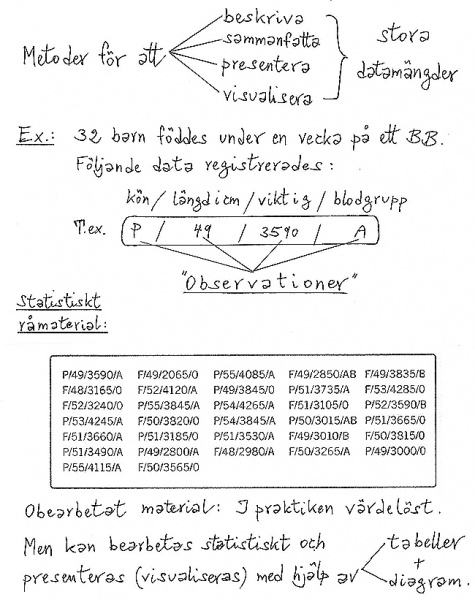 Metoder för att
beskriva
sammanfatta
presentera
visualisera
stora
datamängder
Ex.: 32 barn föddes under en vecka på ett B.B.
Följande data registrerades:
kön / längd i cm / vikt i g / blodgrupp
T.ex. P / 49 / 3590 / A
"Observationer"
Statistiskt
råmaterial:
P/49/3590/A F/49/2065/0 P/55/4085/A F/49/2850/AB F/49/3835/B
F/48/3165/0 F/52/4120/A P/49/3845/0 P/51/3735/A F/53/4285/0
F/52/3240/0 P/55/3845/A P/54/4265/A F/51/3105/0 P/52/3590/B
P/53/4245/A F/50/3820/0 P/54/3845/A P/50/3015/AB P/51/3665/0
F/51/3660/A P/51/3185/0 P/51/3530/A F/49/3010/B F/50/3815/0
P/51/3490/A P/49/2800/A F/48/2980/A F/50/3265/A P/49/3000/0
P/55/4115/A F/50/3565/0
Obearbetat material: I praktiken värdelöst.
Men kan bearbetas statistiskt och
presenteras (visualiseras) med hjälp av
tabeller
+
diagram.